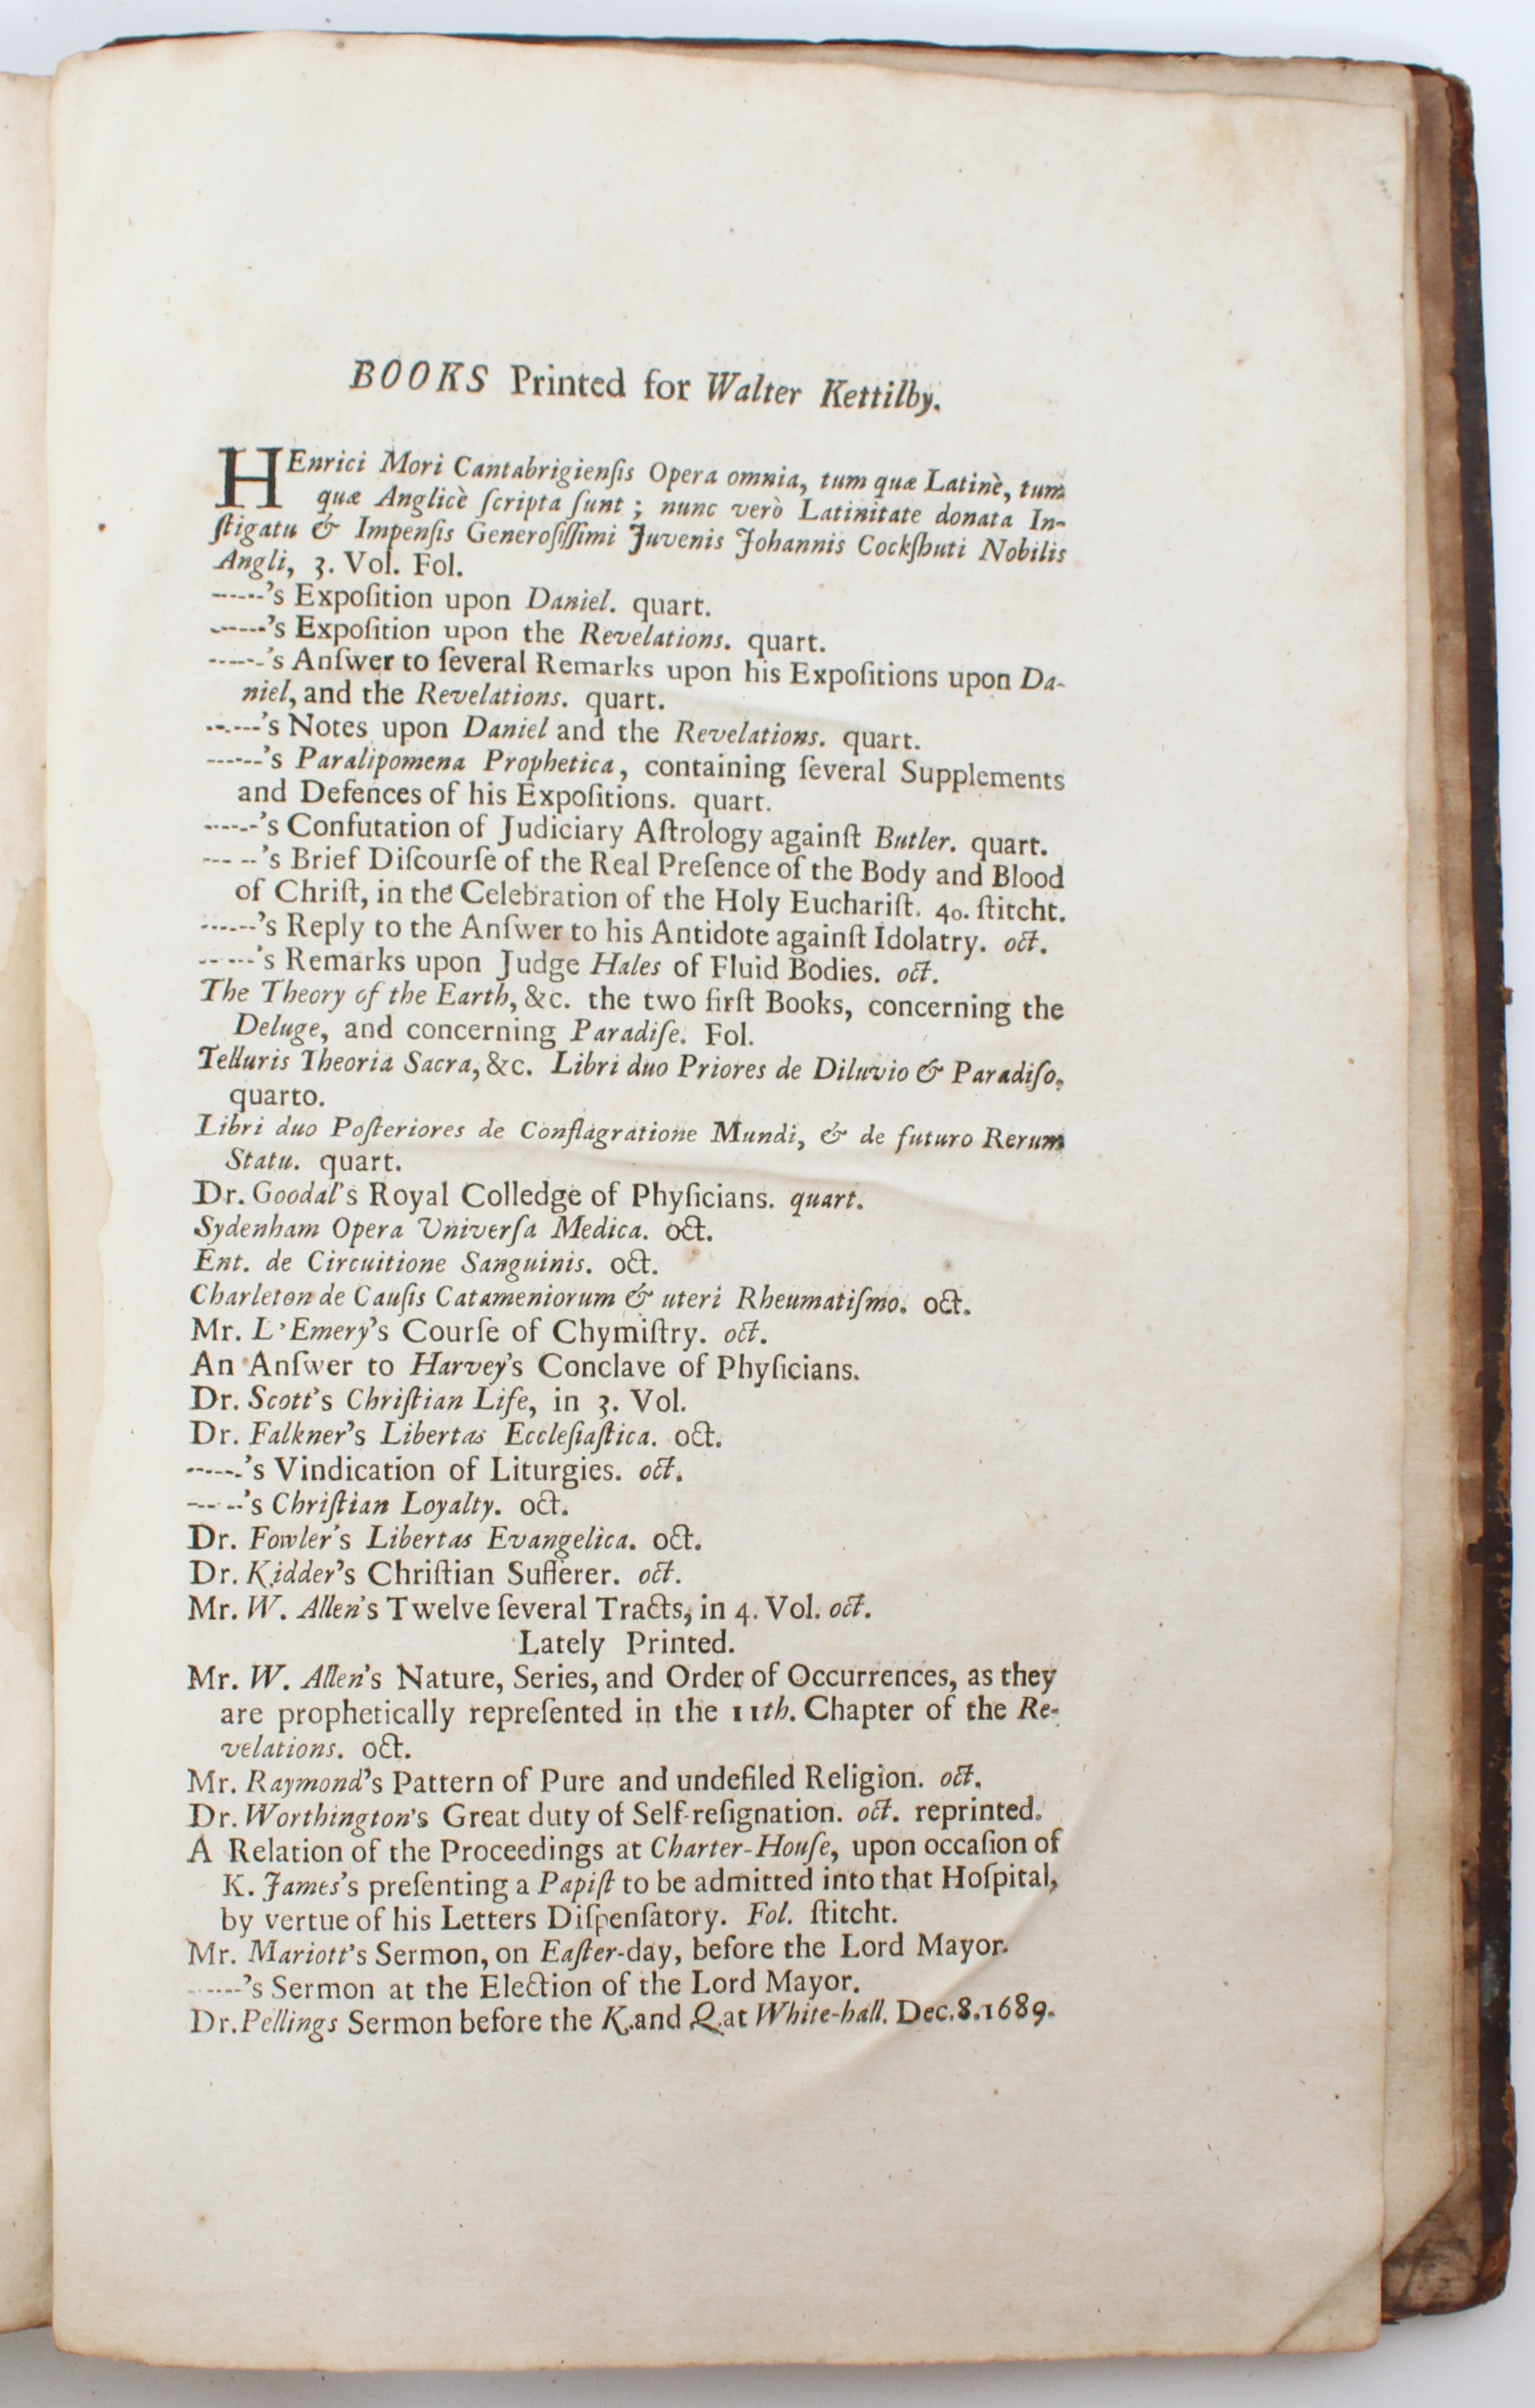 BOOKS Printed for Walter Kettilby.
HEnrici Mori Cantabrigienſis Opera omnia, tum quæ Latinè, tum
quæ Anglicè ſcripta ſunt ; nunc verò Latinitate donata In-
ſtigatu & Impenſis Generoſiſſimi Juvenis Johannis Cockſhuti Nobilis
Angli, 3. Vol. Fol.
------'s Expoſition upon Daniel. quart.
------'s Expoſition upon the Revelations. quart.
------'s Anſwer to ſeveral Remarks upon his Expoſitions upon Da-
niel, and the Revelations. quart.
------'s Notes upon Daniel and the Revelations. quart.
------'s Paralipomena Prophetica, containing ſeveral Supplements
and Defences of his Expoſitions. quart.
------'s Confutation of Judiciary Aſtrology againſt Butler. quart.
--- --'s Brief Diſcourſe of the Real Preſence of the Body and Blood
of Chriſt, in the Celebration of the Holy Euchariſt. 4o. ſtitcht.
------'s Reply to the Anſwer to his Antidote againſt Idolatry. oct.
------'s Remarks upon Judge Hales of Fluid Bodies. oct.
The Theory of the Earth, &c. the two firſt Books, concerning the
Deluge, and concerning Paradiſe. Fol.
Telluris Theoria Sacra, &c. Libri duo Priores de Diluvio & Paradiſo,
quarto.
Libri duo Poſteriores de Conflagratione Mundi, & de futuro Rerum
Statu. quart.
Dr. Goodal's Royal Colledge of Phyſicians. quart.
Sydenham Opera Univerſa Medica. oct.
Ent. de Circuitione Sanguinis. oct.
Charleton de Cauſis Catameniorum & uteri Rheumatiſmo. oct.
Mr. L'Emery's Courſe of Chymiſtry. oct.
An Anſwer to Harvey's Conclave of Phyſicians.
Dr. Scott's Chriſtian Life, in 3. Vol.
Dr. Falkner's Libertas Eccleſiaſtica. oct.
------'s Vindication of Liturgies. oct.
--- --'s Chriſtian Loyalty. oct.
Dr. Fowler's Libertas Evangelica. oct.
Dr. Kidder's Chriſtian Sufferer. oct.
Mr. W. Allen's Twelve ſeveral Tracts, in 4. Vol. oct.
Lately Printed.
Mr. W. Allen's Nature, Series, and Order of Occurrences, as they
are prophetically repreſented in the 11th. Chapter of the Re-
velations. oct.
Mr. Raymond's Pattern of Pure and undefiled Religion. oct.
Dr. Worthington's Great duty of Self-reſignation. oct. reprinted.
A Relation of the Proceedings at Charter-Houſe, upon occaſion of
K. James's preſenting a Papiſt to be admitted into that Hoſpital,
by vertue of his Letters Diſpenſatory. Fol. ſtitcht.
Mr. Mariott's Sermon, on Eaſter-day, before the Lord Mayor.
------'s Sermon at the Election of the Lord Mayor.
Dr. Pellings Sermon before the K. and Q. at White-hall. Dec. 8. 1689.